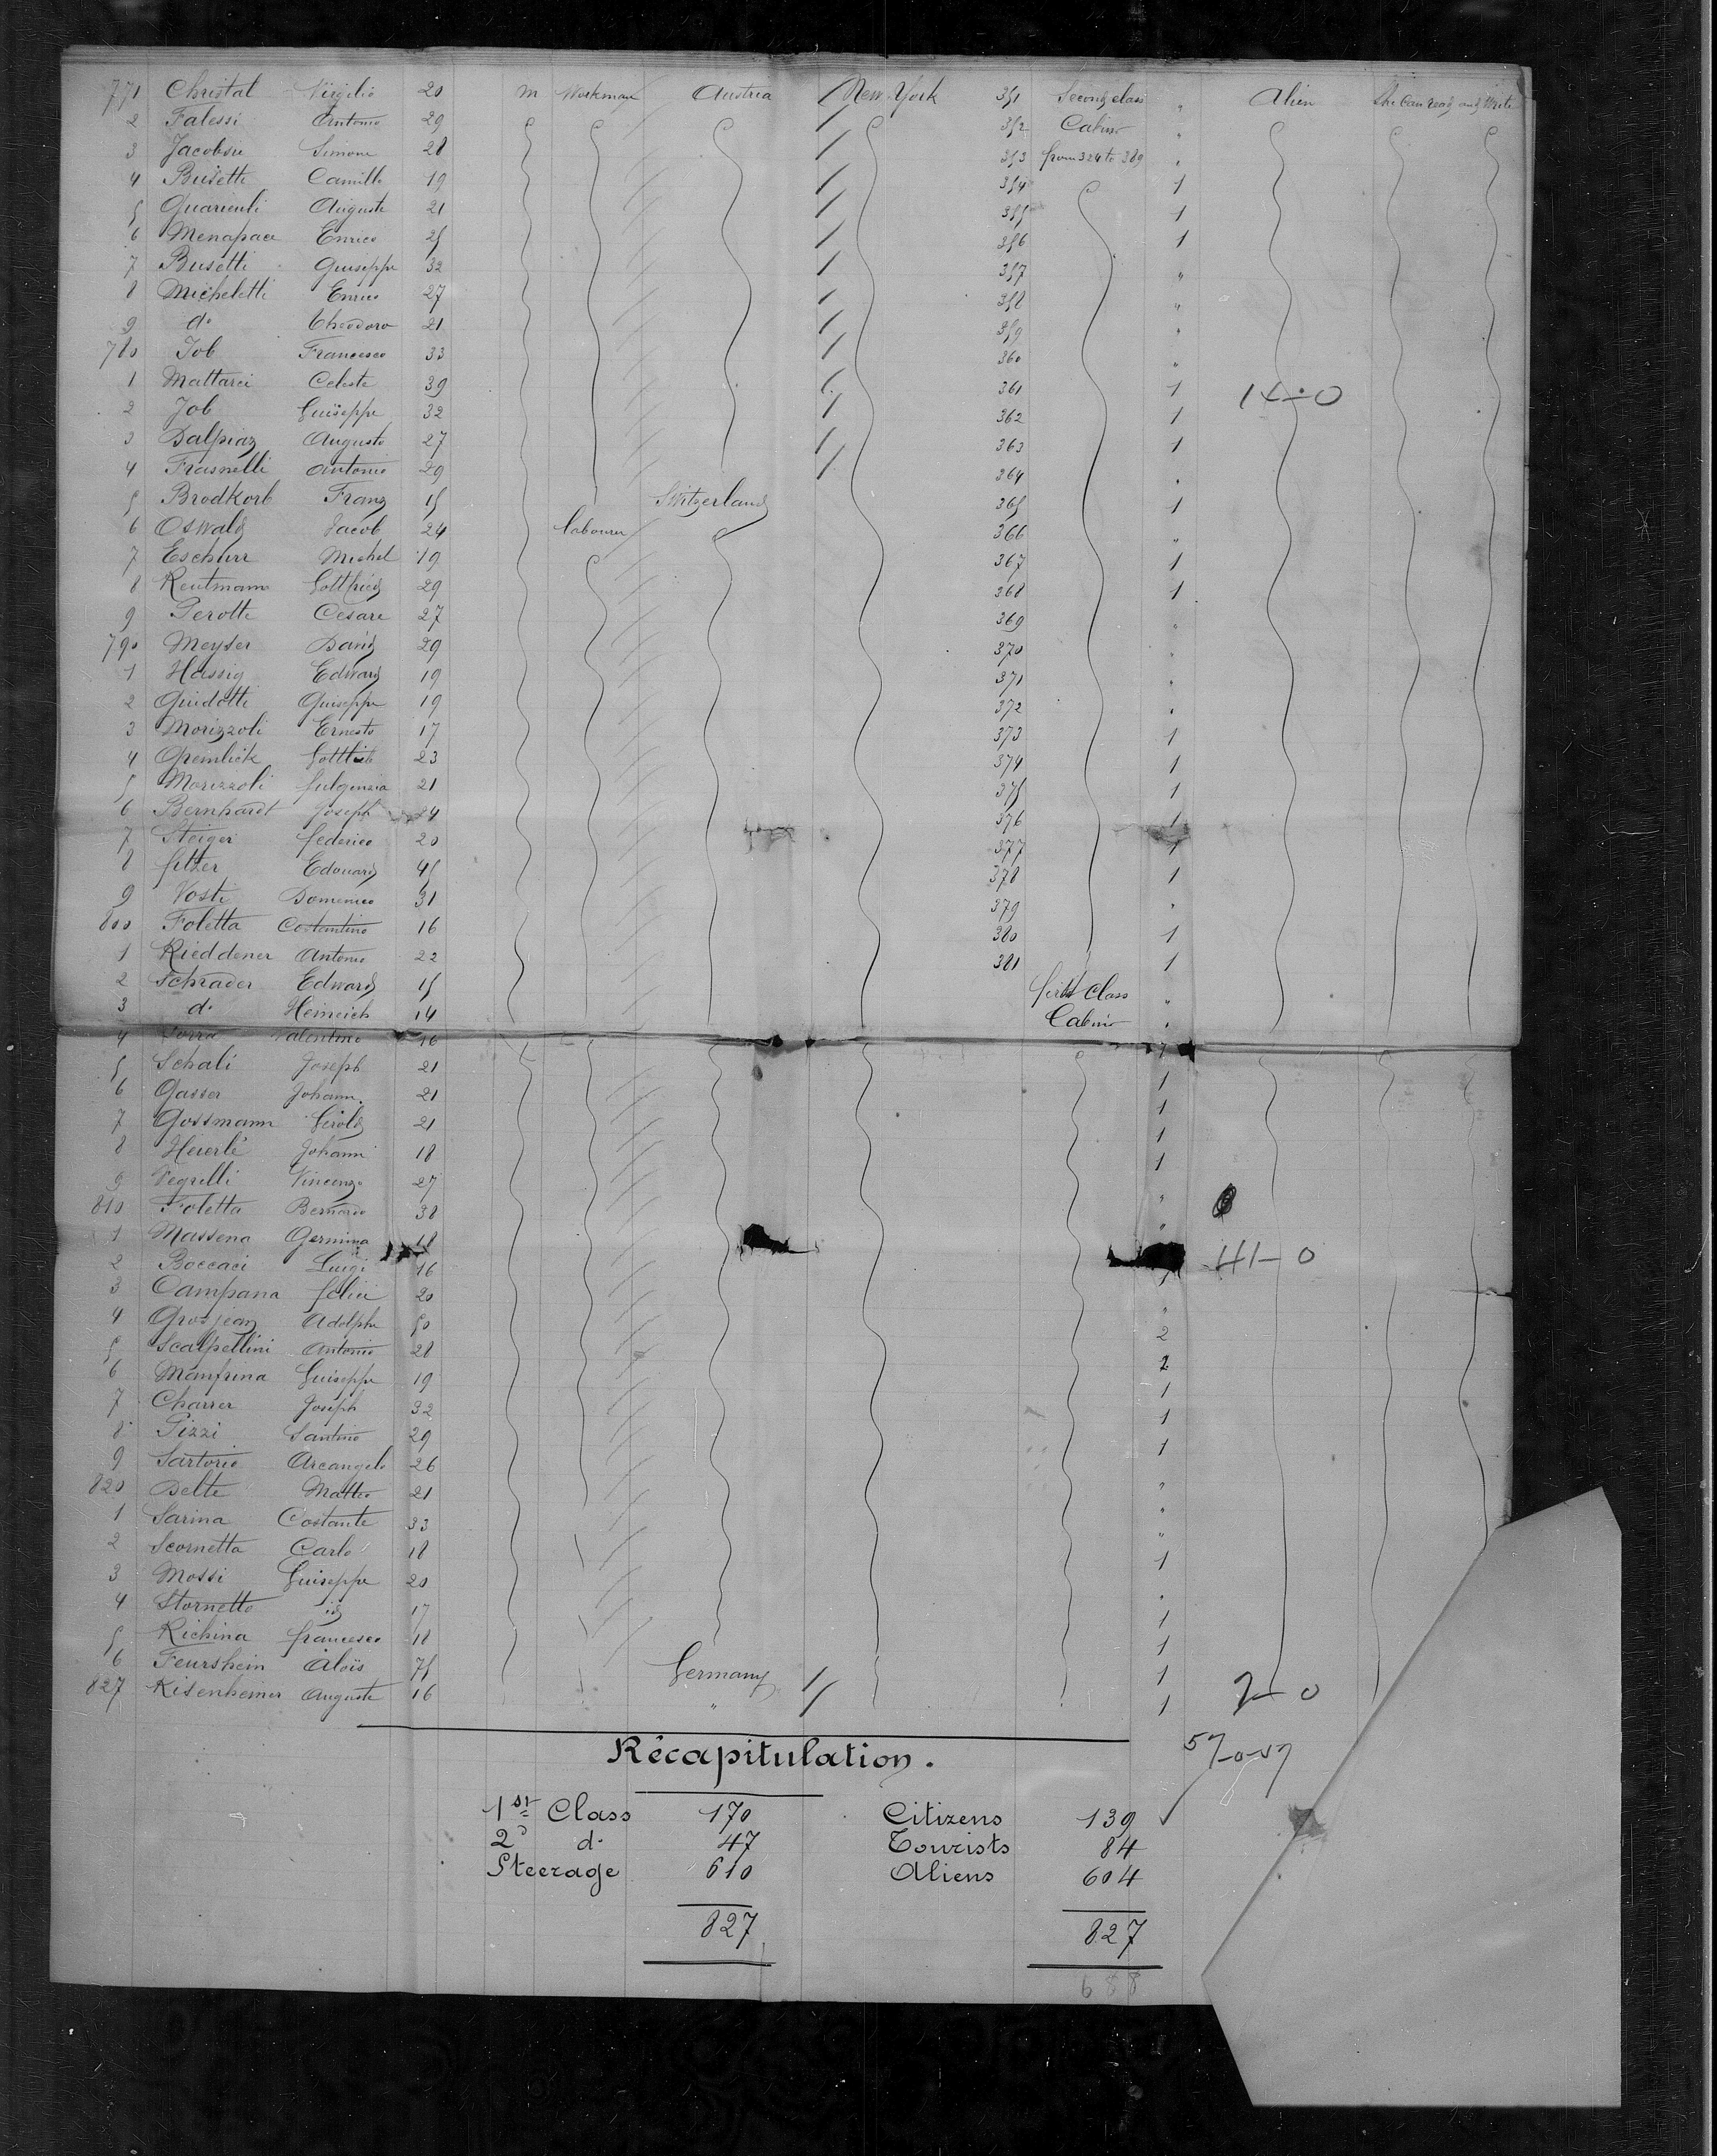 771 Christal Virgilio 20 m Workman Austria / New-York 351 Second class " Alien She Can read and Write
2 Falessi Antonio 29 / 352 Cabins "
3 Jacobsie Simone 28 / 353 from 324 to 389 "
4 Busetti Camillo 19 / 354 1
5 Guarienti Auguste 21 / 355 1
6 Menapace Enrico 25 / 356 1
7 Busetti Guiseppe 32 / 357 "
8 Micheletti Enrico 27 / 358 "
9 do Theodoro 21 / 359 "
780 Job Francesco 33 / 360 "
1 Mattarei Celeste 39 / 361 1 14-0
2 Job Guiseppe 32 / 362 1
3 Dalpiaz Augusto 27 / 363 1
4 Frasnelli Antonio 29 / 364 "
5 Brodkorb Franz 15 Switzerland 365 1
6 Oswald Jacob 24 labourer 366 "
7 Eschurr Michel 19 367 1
8 Reutmann Gottfried 29 368 1
9 Perotti Cesare 27 369 "
790 Meyser David 29 370 "
1 Hassig Edward 19 371 "
2 Guidotti Guiseppe 19 372 "
3 Morizzoli Ernesto 17 373 1
4 Gremlick Gottlieb 23 374 1
5 Morizzoli fulgenzia 21 375 1
6 Bernhardt Joseph 24 376 1
7 Steiger federico 20 377 1
8 filzer Edouard 45 378 1
9 Vosti Domenico 31 379 "
800 Foletta Costantino 16 380 1
1 Rieddener Antonio 22 381 1
2 Schrader Edward 15 first class "
3 do Heinrich 14 Cabins "
4 Valentino 16 1
5 Schali Joseph 21 1
6 Gasser Johann. 21 1
7 Gossmann Girold 21 1
8 Heuerlé Johann 18 1
9 Pegrelli Vincenzo 27 "
810 Foletta Bernardo 38 "
1 Massena Germina 18 41-0
2 Boccaci Luigi 16 1
3 Campana felice 20 "
4 Grosjean Adolphe 50 2
5 Scalpellini Antonio 28 2
6 Manfrina Guiseppe 19 1
7 Charrer Joseph 32 1
8 Pizzi Santino 29 1
9 Sartorio Arcangelo 26 "
820 Delte Matteo 21 "
1 Sarina Costante 33 "
2 Scornetta Carlo 18 1
3 Mossi Guiseppe 20 "
4 Stornetto id 17 1
5 Richina francesco 18 1
6 Feurshein Aloïs 75 Germany / 1
827 Risenheimer Auguste 16 " / 1 2-0
57-0-57
Récapitulation.
1st Class 170 Citizens 139 ✓
2d do 47 Tourists 84
Steerage 610 Aliens 604
827 827
688